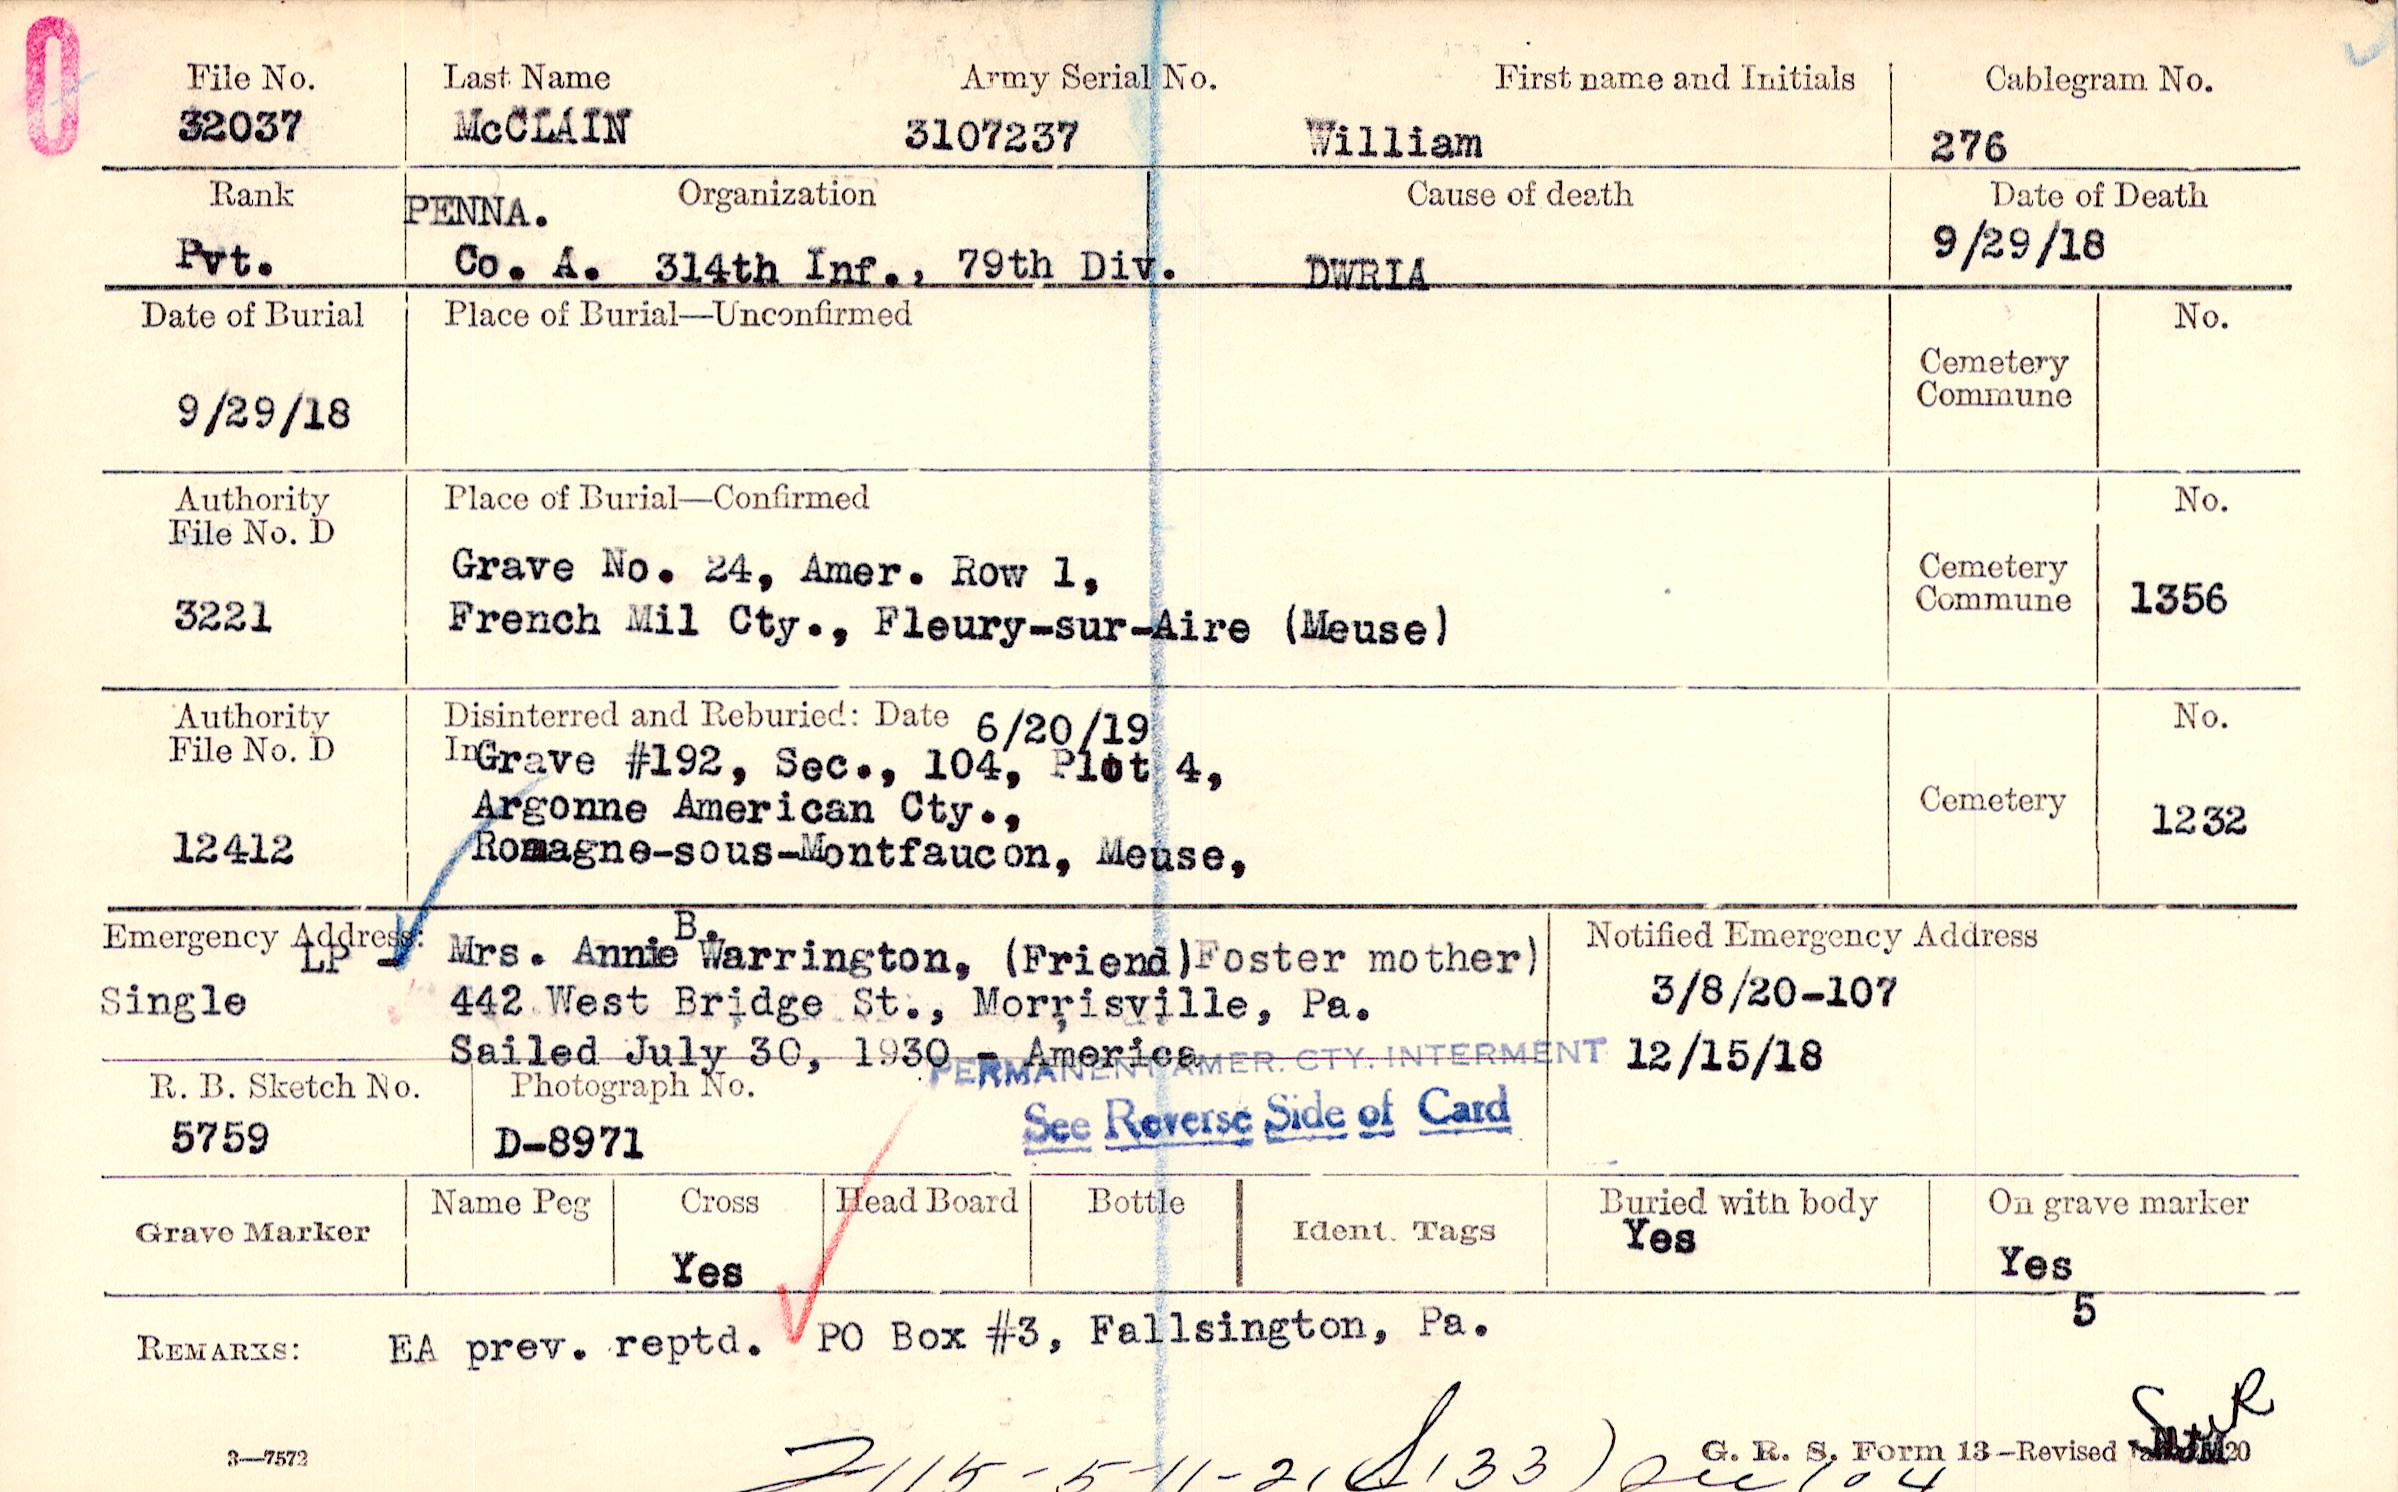 File No. Last Name Army Serial No. First name and Initials Cablegram No.
32037 McCLAIN 3107237 William 276
Rank PENNA. Organization Cause of death Date of Death
Pvt. Co. A. 314th Inf., 79th Div. DWRIA 9/29/18
Date of Burial Place of Burial—Unconfirmed No.
Cemetery
Commune
9/29/18
Authority Place of Burial—Confirmed No.
File No. D
Grave No. 24, Amer. Row 1, Cemetery
Commune 1356
3221 French Mil Cty., Fleury-sur-Aire (Meuse)
Authority Disinterred and Reburied: Date 6/20/19 No.
File No. D In Grave #192, Sec., 104, Plot 4,
Argonne American Cty., Cemetery 1232
12412 Romagne-sous-Montfaucon, Meuse,
Emergency Address: Mrs. Annie B. Warrington, (Friend)Foster mother) Notified Emergency Address
LP -
Single 442 West Bridge St., Morrisville, Pa. 3/8/20-107
Sailed July 30, 1930 - America 12/15/18
PERMANENT AMER. CTY. INTERMENT
R. B. Sketch No. Photograph No. See Reverse Side of Card
5759 D-8971
Grave Marker Name Peg Cross Head Board Bottle Ident. Tags Buried with body On grave marker
Yes Yes Yes
5
REMARKS: EA prev. reptd. PO Box #3, Fallsington, Pa.
3—7572 G. R. S. Form 13—Revised 20